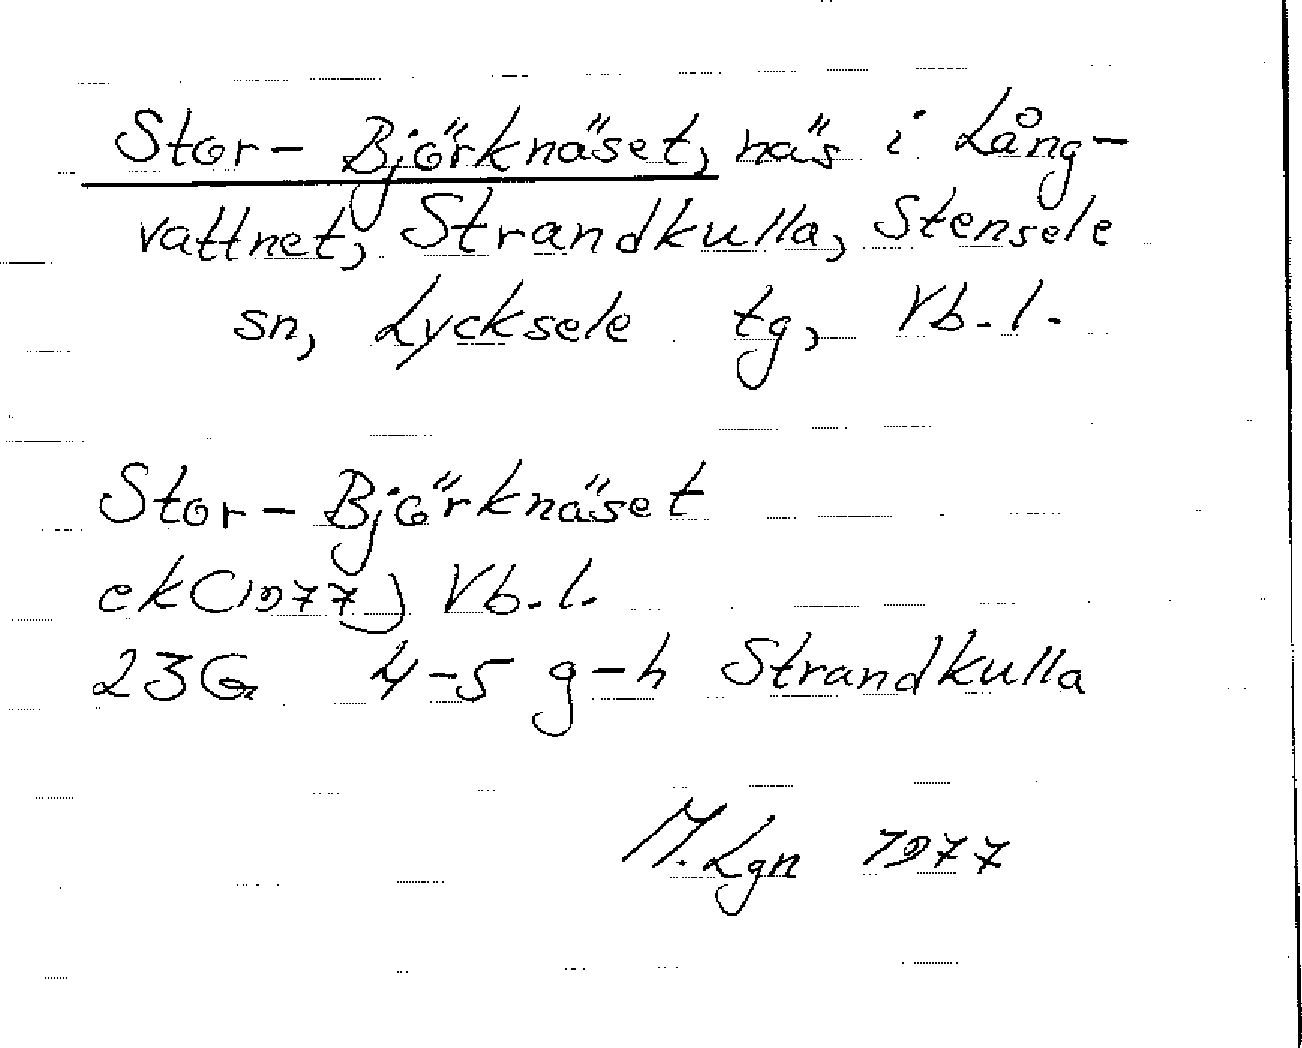 Stor-Björknäset, näs i Lång-
vattnet, Strandkulla, Stensele
sn, Lycksele tg, Vb.l.
Stor-Björknäset
ek(1977) Vb.l.
23G 4-5 g-h Strandkulla
M.Lgn 1977